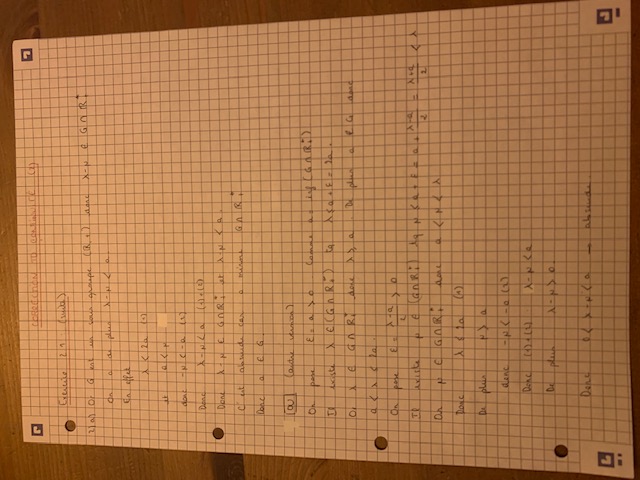 CORRECTION TD CONTINUITÉ (2)
Exercice 21 (suite)
2)a) Or G est un sous groupe (ℝ,+) donc λ-μ ∈ G∩ℝ*₊
On a de plus λ-μ < a
En effet
λ < 2a (1)
et a < μ
donc -μ < -a (2)
Donc λ-μ < a (1)+(2)
Donc λ-μ ∈ G∩ℝ*₊ et λ-μ < a.
C'est absurde car a minore G∩ℝ*₊
Donc a ∈ G.
OU (autre version)
On pose ε = a > 0. Comme a = inf(G∩ℝ*₊)
Il existe λ ∈ (G∩ℝ*₊) tq λ ≤ a+ε = 2a.
Or λ ∈ G∩ℝ*₊ donc λ ≥ a. De plus a ∉ G donc
a < λ ≤ 2a.
On pose ε = (λ-a)/2 > 0
Il existe μ ∈ (G∩ℝ*₊) tq μ ≤ a+ε = a + (λ-a)/2 = (λ+a)/2 < λ
Or μ ∈ G∩ℝ*₊ donc a < μ < λ
Donc λ ≤ 2a (1)
De plus μ > a
donc -μ < -a (2)
Donc (1)+(2) λ-μ < a
De plus λ-μ > 0
Donc 0 < λ-μ < a → absurde.